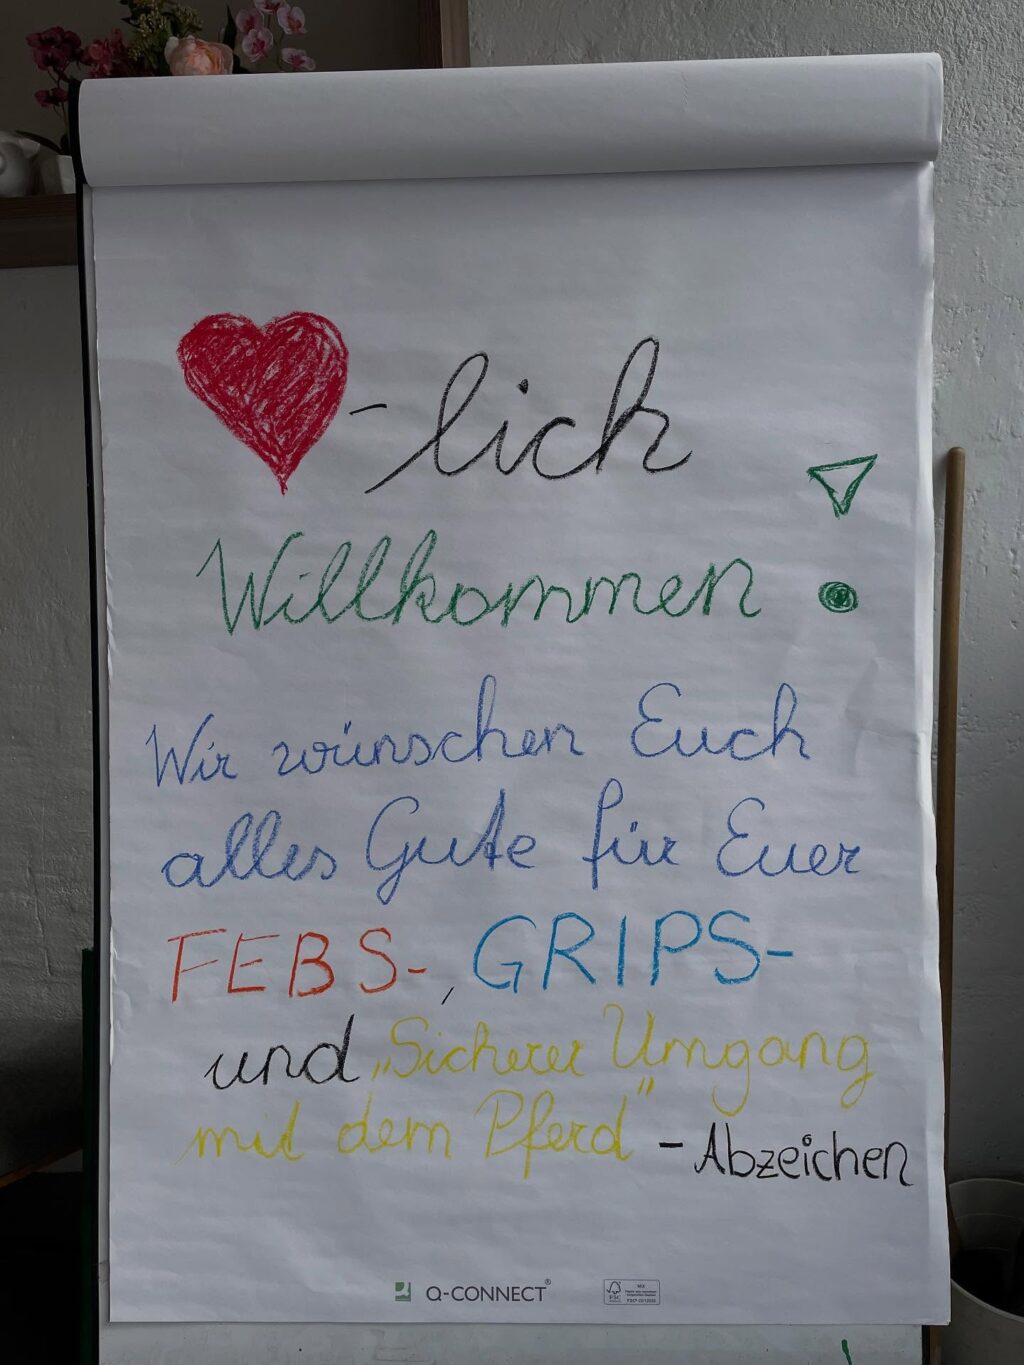 ❤-lich
Willkommen!
Wir wünschen Euch
alles Gute für Euer
FEBS-, GRIPS-
und „Sicherer Umgang
mit dem Pferd"-Abzeichen
Q-CONNECT®
FSC
MIX